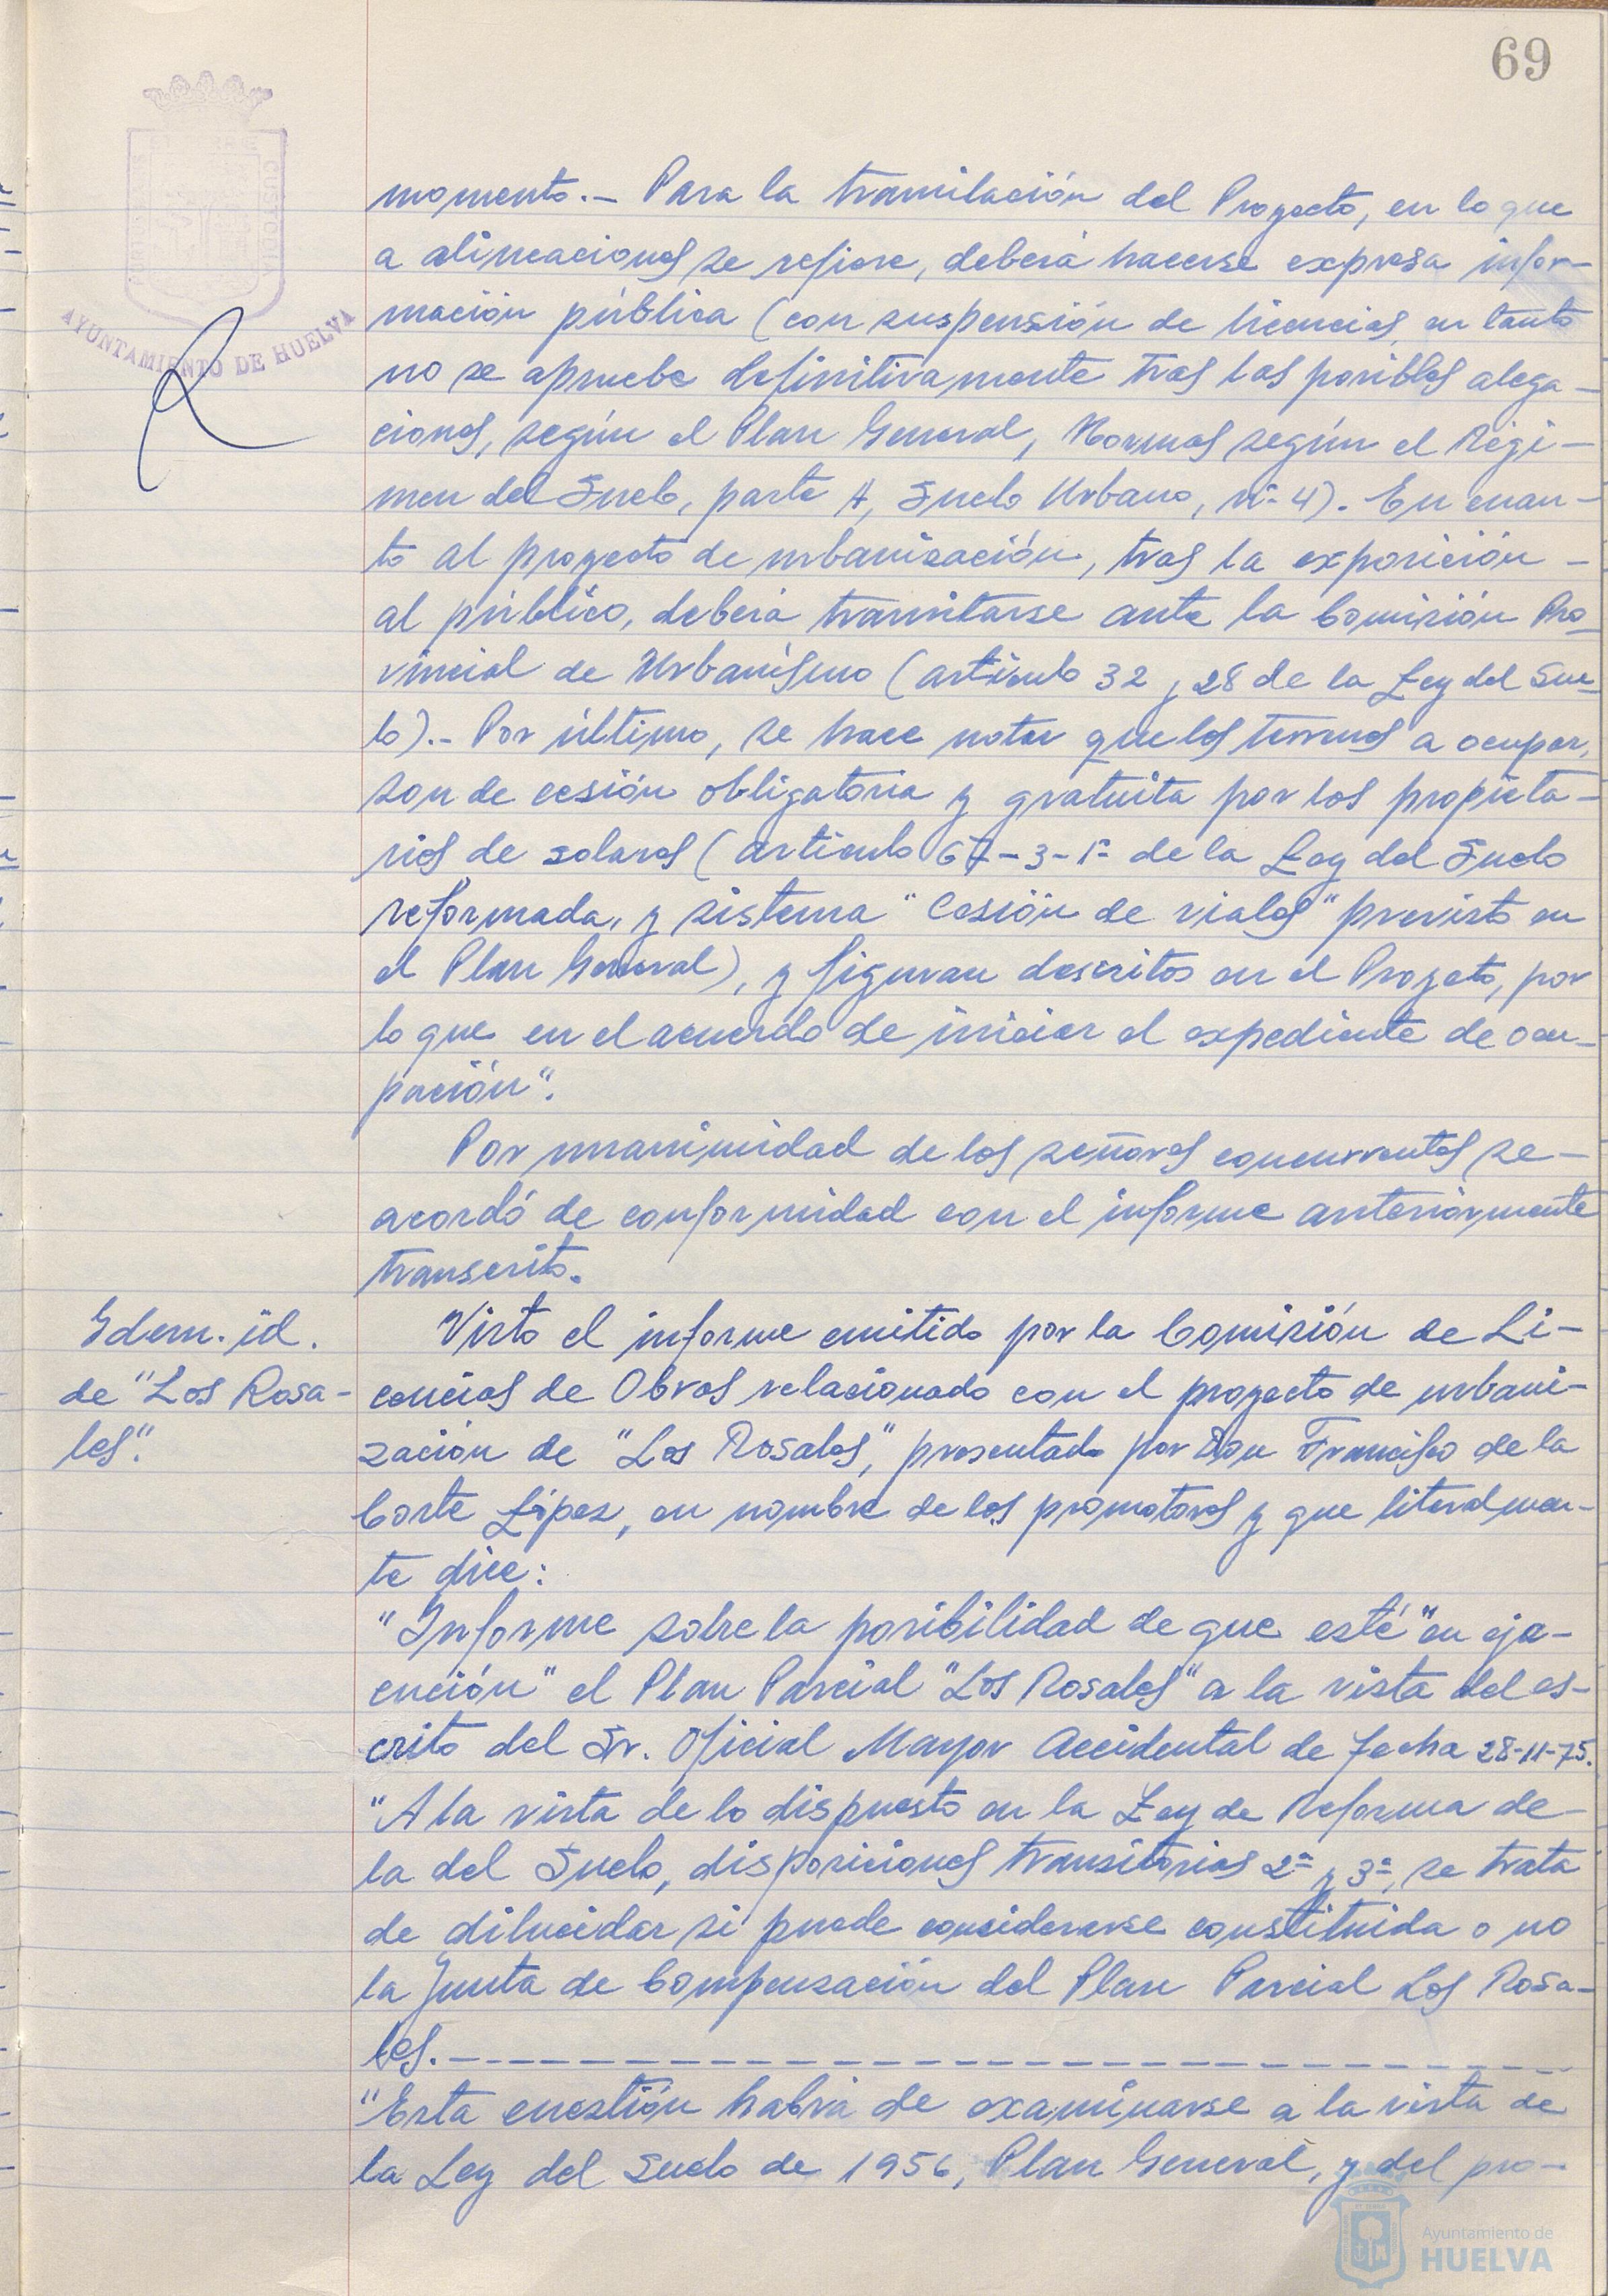 69
PORTUS MARIS ET TERRAE CUSTODIA
AYUNTAMIENTO DE HUELVA
momento.- Para la tramitación del Proyecto, en lo que
a alineaciones se refiere, deberá hacerse expresa infor-
mación pública (con suspensión de licencias, en tanto
no se apruebe definitivamente tras las posibles alega-
ciones, según el Plan General, Normas según el Régi-
men del Suelo, parte A, Suelo Urbano, nº 4). En cuan-
to al proyecto de urbanización, tras la exposición -
al público, deberá tramitarse ante la Comisión Pro-
vincial de Urbanismo (artículo 32 y 28 de la Ley del Sue-
lo).- Por último, se hace notar que los terrenos a ocupar,
son de cesión obligatoria y gratuita por los propieta-
rios de solares (artículo 67-3-1º de la Ley del Suelo
reformada, y sistema "Cesión de viales" previsto en
el Plan General), y figuran descritos en el Proyeto, por
lo que en el acuerdo de iniciar el expediente de ocu-
pación".
Por unanimidad de los señores concurrentes se -
acordó de conformidad con el informe anteriormente
transcrito.
Idem. id.
de "Los Rosa-
les".
Visto el informe emitido por la Comisión de Li-
cencias de Obras relacionado con el proyecto de urbani-
zación de "Los Rosales", presentado por Don Francisco de la
Corte López, en nombre de los promotores y que literalmen-
te dice:
"Informe sobre la posibilidad de que esté "en eje-
cución" el Plan Parcial "Los Rosales" a la vista del es-
crito del Sr. Oficial Mayor Accidental de fecha 28-11-75.
"A la vista de lo dispuesto en la Ley de Reforma de -
la del Suelo, disposiciones transitorias 2ª y 3ª, se trata
de dilucidar si puede considerarse constituida o no
la Junta de Compensación del Plan Parcial Los Rosa-
les.-
"Esta cuestión habrá de examinarse a la vista de
la Ley del Suelo de 1956, Plan General, y del pro-
Ayuntamiento de
HUELVA